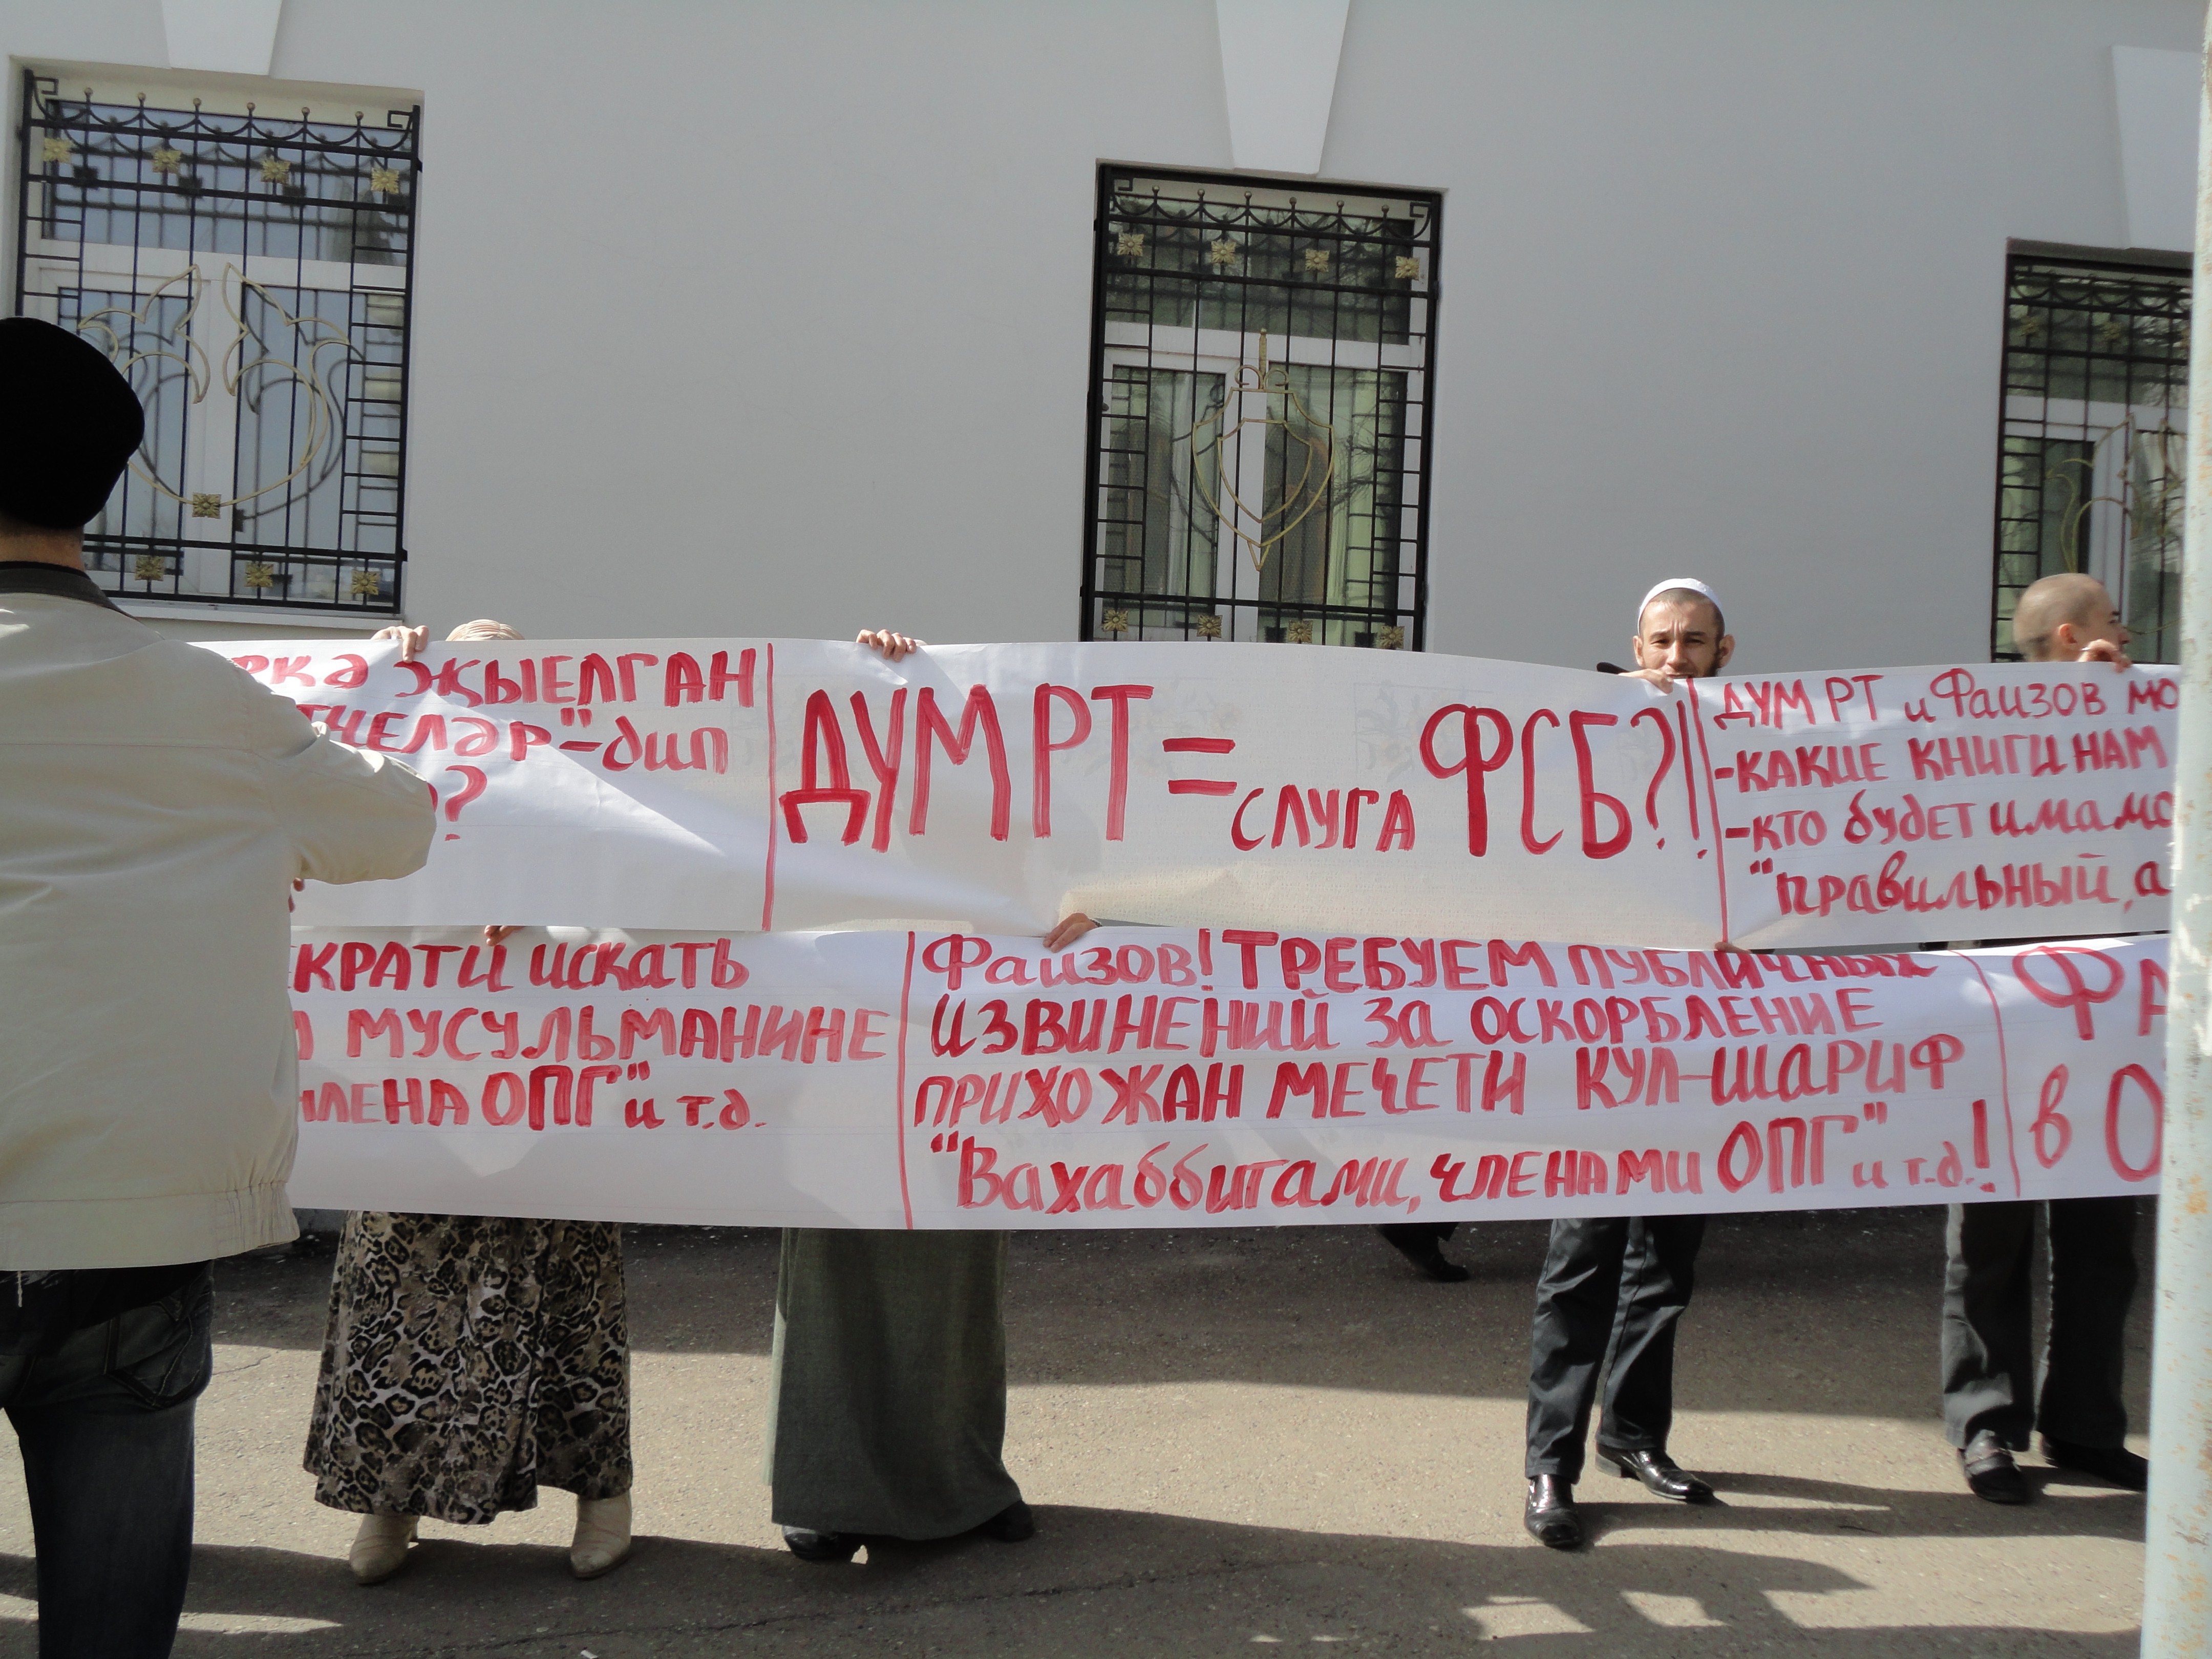 җыелган
ЧЕЛӘР"-дип
?
ДУМ РТ = СЛУГА ФСБ?!
ДУМ РТ и Фаизов
-КАКИЕ КНИГИ НАМ
-КТО будет
"правильный, а
искать
МУСУЛЬМАНИНЕ
ОПГ" и т.д.
Фаизов! ТРЕБУЕМ ПУБЛИЧНЫХ
ИЗВИНЕНИЙ ЗА ОСКОРБЛЕНИЕ
ПРИХОЖАН МЕЧЕТИ КУЛ-ШАРИФ
"Вахаббитами, членами ОПГ" и т.д.!
в